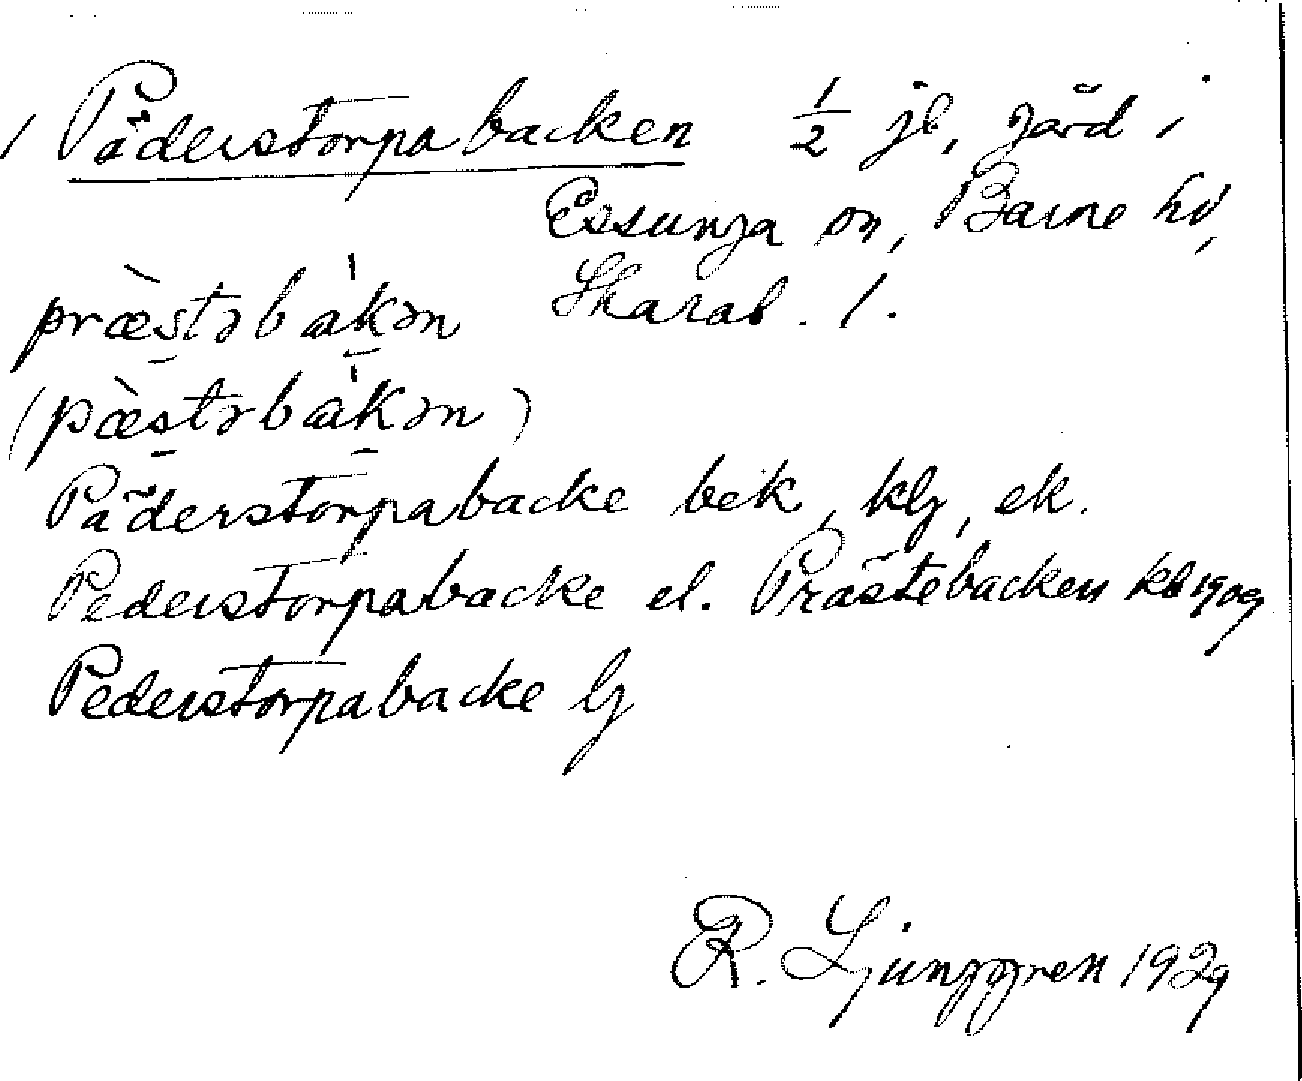 / Päderstorpabacken 1/2 jb, gård i
Essunga sn, Barne hd,
Skarab. l.
præ̀stəbàkən
(pæ̀stəbàkən)
Päderstorpabacke bek, klg, ek.
Pederstorpabacke el. Prästebacken kb 1909
Pederstorpabacke lg
R. Ljunggren 1929